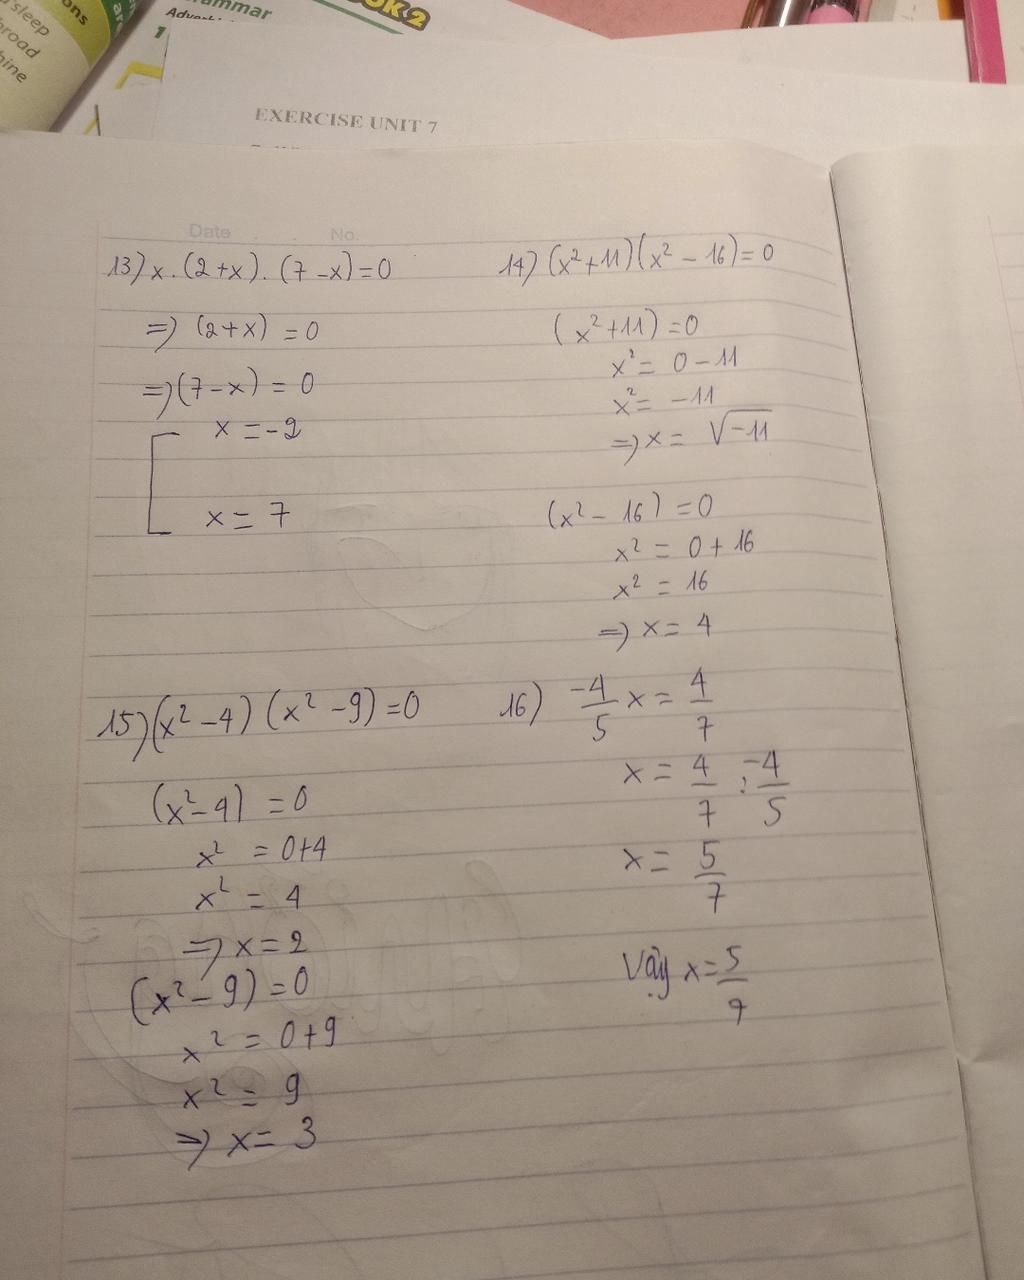 ons
sleep
broad
hine
ar
rammar
OK 2
1
EXERCISE UNIT 7
Date . . No.
13) x . (2+x) . (7-x) = 0
=> (2+x) = 0
=> (7-x) = 0
x = -2
x = 7
14) (x² + 11) (x² - 16) = 0
(x² + 11) = 0
x² = 0 - 11
x² = -11
=> x = √-11
(x² - 16) = 0
x² = 0 + 16
x² = 16
=> x = 4
15) (x² - 4) (x² - 9) = 0
(x² - 4) = 0
x² = 0+4
x² = 4
=> x = 2
(x² - 9) = 0
x² = 0+9
x² = 9
=> x = 3
16) -4/5 x = 4/7
x = 4/7 : -4/5
x = 5/7
Vậy x = 5/7